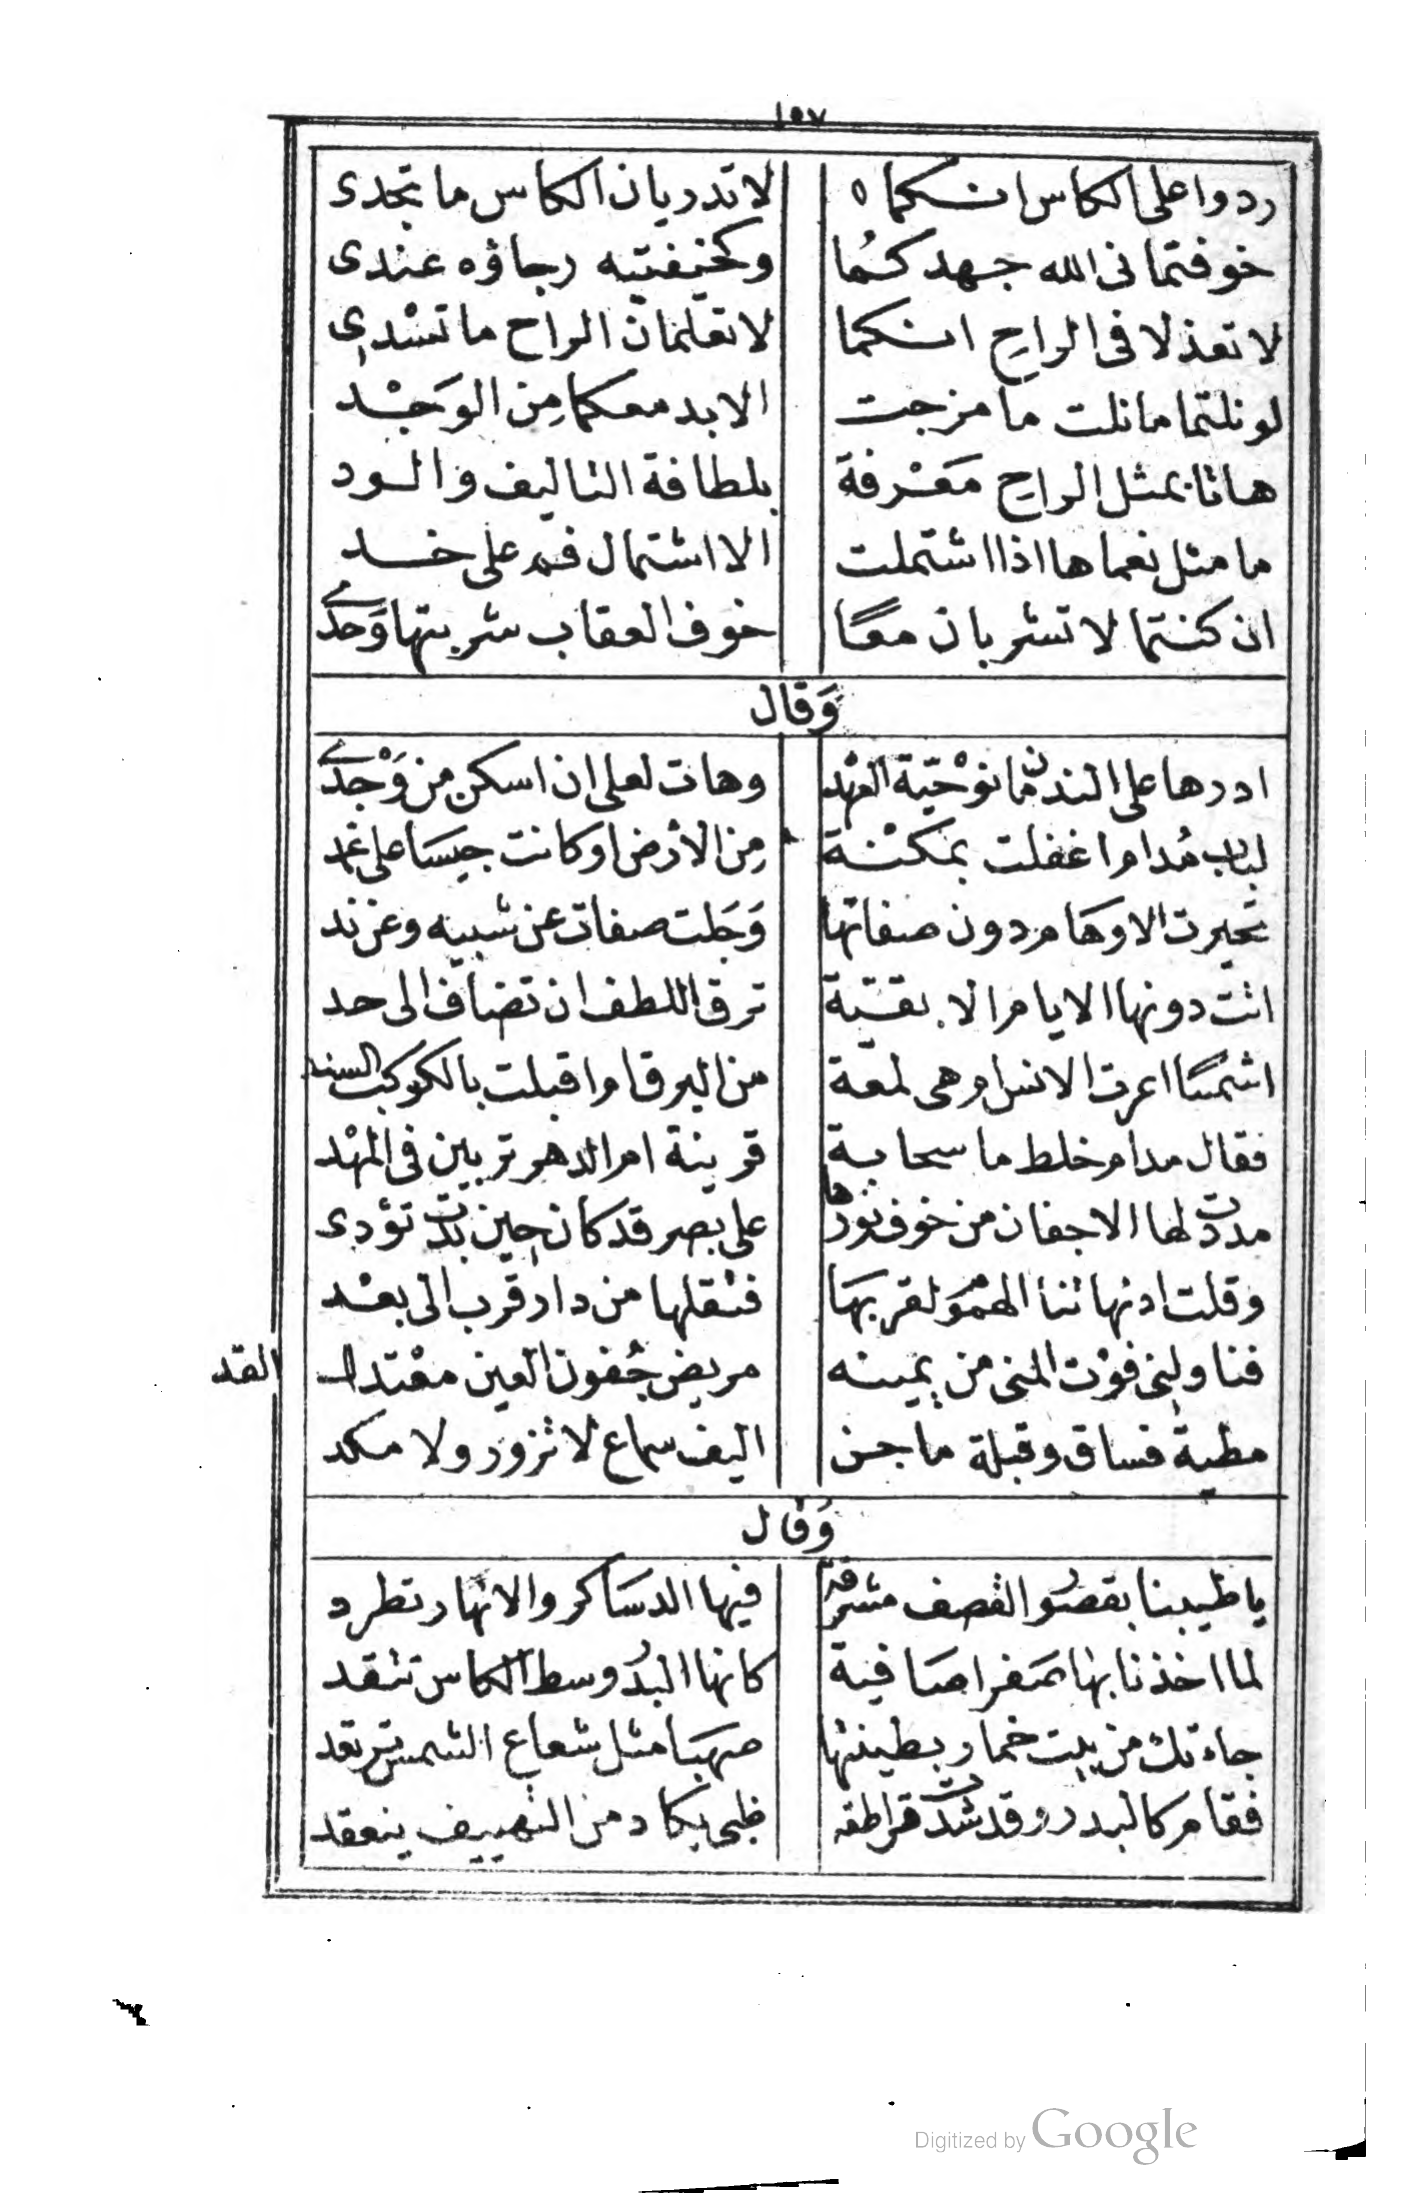 ١٥٧
ردوا على الكاس انكما ٥ لا تدريان الكاس ما تجدى
خوفتمانى الله جهدكما وكخيفتيه رجاؤه عندى
لا تعذلا فى الراح انكما لا تعلمان الراح ما تسدى
لو نلتما ما نلت ما مزجت الا بدمعكما من الوجد
هاتا بمثل الراح معرفة بلطافة التاليف والود
ما مثل نعماها اذا اشتملت الا اشتمال فم على خد
ان كنتما لا تشربان معا خوف العقاب شربتها وحدى
وقال
ادرها على الندمان نوحية العهد وهات لعلى ان اسكن من وجدى
لباب مدام اغفلت بمكنة من الأرض او كانت جيسا على عمد
تحيرت الاوهام دون صفاتها وجلت صفات عن شبيه وعن ند
اتت دونها الايام الا بقية ترق اللطف ان تضاف الى حد
اشمسا اعرت الانس ام هى لمعة من البرق ام اقبلت بالكوكب السعد
فقال مدام خلط ما سحابة قرينة ام الدهر تربين فى المهد
مددت لها الاجفان من خوف نورها على بصر قد كان حين بدت تؤدى
وقلت ادنها تنا الهموم لقربها فتنقلها من دار قرب الى بعد
فناولنى فوت المنى من يمينه مريض جفون العين معتدل القد
مطية فساق وقبلة ماجن اليف سماع لا نزور ولا مكد
وقال
يا طيبنا بقصور القصف مشرفة فيها الدساكر والانهار تطرد
لما اخذنا بها صفرا صافية كانها البدر وسط الكاس تتقد
جاءتك من بيت خمار بطينتها صهبا مثل شعاع الشمس ترتعد
فقام كالبدر وقد شدت قراطقه ظبى يكاد من التهييف ينعقد
Digitized by Google